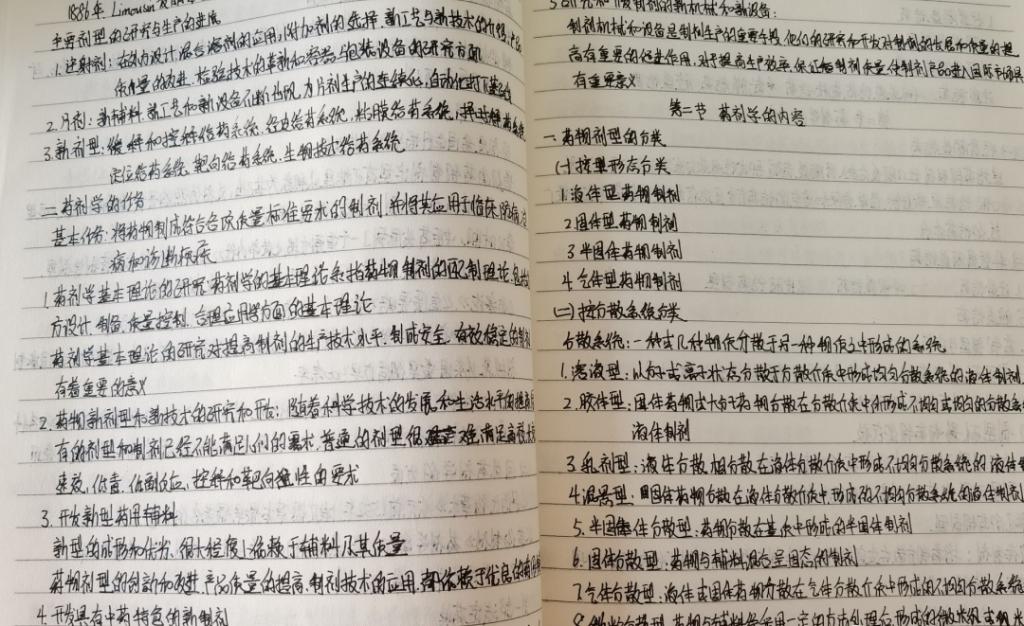 1886年. Limousin发
主要剂型的研究与生产的进展
1. 注射剂: 在处方设计、混合溶剂的应用, 附加剂的选择. 新工艺与新技术的
质量的改进, 检验技术的革新和容器与包装设备的研究方面
2. 片剂: 新辅料 新工艺和新设备不断出现, 为片剂生产的连续化, 自动化打下基础
3. 新剂型: 缓释和控释给药系统, 经皮给药系统, 粘膜给药系统,
定位给药系统, 靶向给药系统. 生物技术给药系统
二. 药剂学的任务
基本任务: 将药物制成符合各项质量标准要求的制剂, 并将其应用于临床,
病和诊断疾病
1. 药剂学基本理论的研究: 药剂学的基本理论系指药物制剂的配制理论,
方设计. 制备. 质量控制. 合理应用等方面的基本理论
药剂学基本理论的研究对提高制剂的生产技术水平. 制成安全. 有效稳定的制剂
有着重要的意义
2. 药物新剂型和新技术的研究和开发: 随着科学技术的发展和生活水平的提高
有的剂型和制剂已经不能满足人们的需求. 普通的剂型很难满足高效
速效, 低毒. 低副反应, 控释和靶向性的要求
3. 开发新型药用辅料
新型的成形和优劣, 很大程度上依赖于辅料及其质量
药物剂型的创新和改进. 产品质量的提高. 制剂技术的应用. 都依赖于优良的
4. 开发具有中药特色的新制剂
5. 研究和开发制剂的新机械和新设备:
制剂机械和设备是制剂生产的重要手段, 他们的研究和开发对制剂的发展和质量的提
高有重要的促进作用, 对于提高生产效率, 保证制剂质量, 使制剂产品进入国际市场具
有重要意义
第二节 药剂学的内容
一. 药物剂型的分类
(一) 按型形态分类
1. 液体型药物制剂
2. 固体型药物制剂
3. 半固体药物制剂
4. 气体型药物制剂
(二) 按分散系统分类
分散系统: 一种或几种物质分散于另一种物质之中形成的系统
1. 溶液型: 以分子或离子状态分散于分散介质中形成均匀分散系统的液体制剂
2. 胶体型: 固体药物或大分子药物分散在分散介质中所形成不均匀或均匀的分散系
液体制剂
3. 乳剂型: 液体分散相分散在液体分散介质中形成不均匀分散系统的液体
4. 混悬型: 固体药物分散在液体分散介质中, 形成的不均匀分散系统的液体制剂
5. 半固体分散型: 药物分散在基质中形成的半固体制剂
6. 固体分散型: 药物与辅料混合呈固态的制剂
7. 气体分散型: 液体或固体药物分散在气体分散介质中形成的不均匀分散系
8.